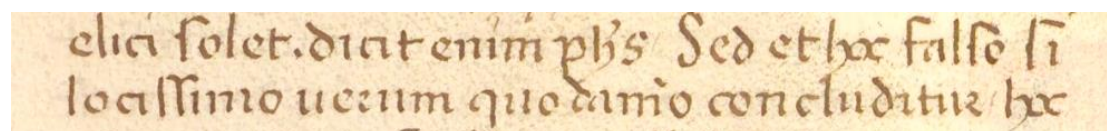 elici ſolet. dicit enim ph̄s Sed et hoc falſo ſi
lociſſimo uerum quodam̄o concluditur hoc